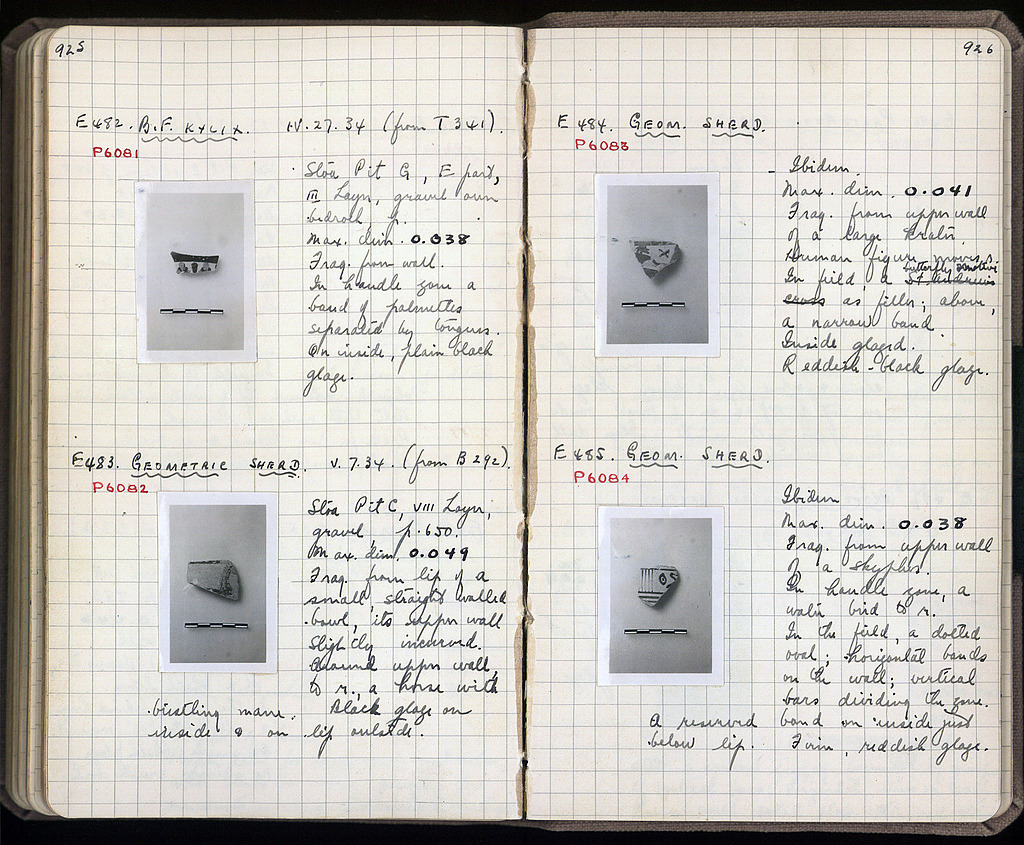 925
E482. B.F. KYLIX. IV.27.34 (from T 341).
P6081
Stoa Pit G, E part,
III Layer, gravel over
bedrock, p.
Max. dim. 0.038
Frag. from wall.
In handle zone a
band of palmettes
separated by tongues.
On inside, plain black
glaze.
E483. GEOMETRIC SHERD. V.7.34 (from B 292).
P6082
Stoa Pit C, VIII Layer,
gravel, p. 650.
Max. dim. 0.049
Frag. from lip of a
small, straight walled
bowl, its upper wall
slightly incurved.
Around upper wall,
to r., a horse with
bristling mane. Black glaze on
inside & on lip outside.
926
E484. GEOM. SHERD.
P6083
Ibidem.
Max. dim. 0.041
Frag. from upper wall
of a large krater.
Human figure, moving
butterfly motive
In field, a St. Andrew's
cross as filler; above,
a narrow band.
Inside glazed.
Reddish-black glaze.
E485. GEOM. SHERD.
P6084
Ibidem
Max. dim. 0.038
Frag. from upper wall
of a skyphos.
In handle zone, a
water bird to r.
In the field, a dotted
oval; horizontal bands
on the wall; vertical
bars dividing the zone.
A reserved band on inside just
below lip. Firm, reddish glaze.